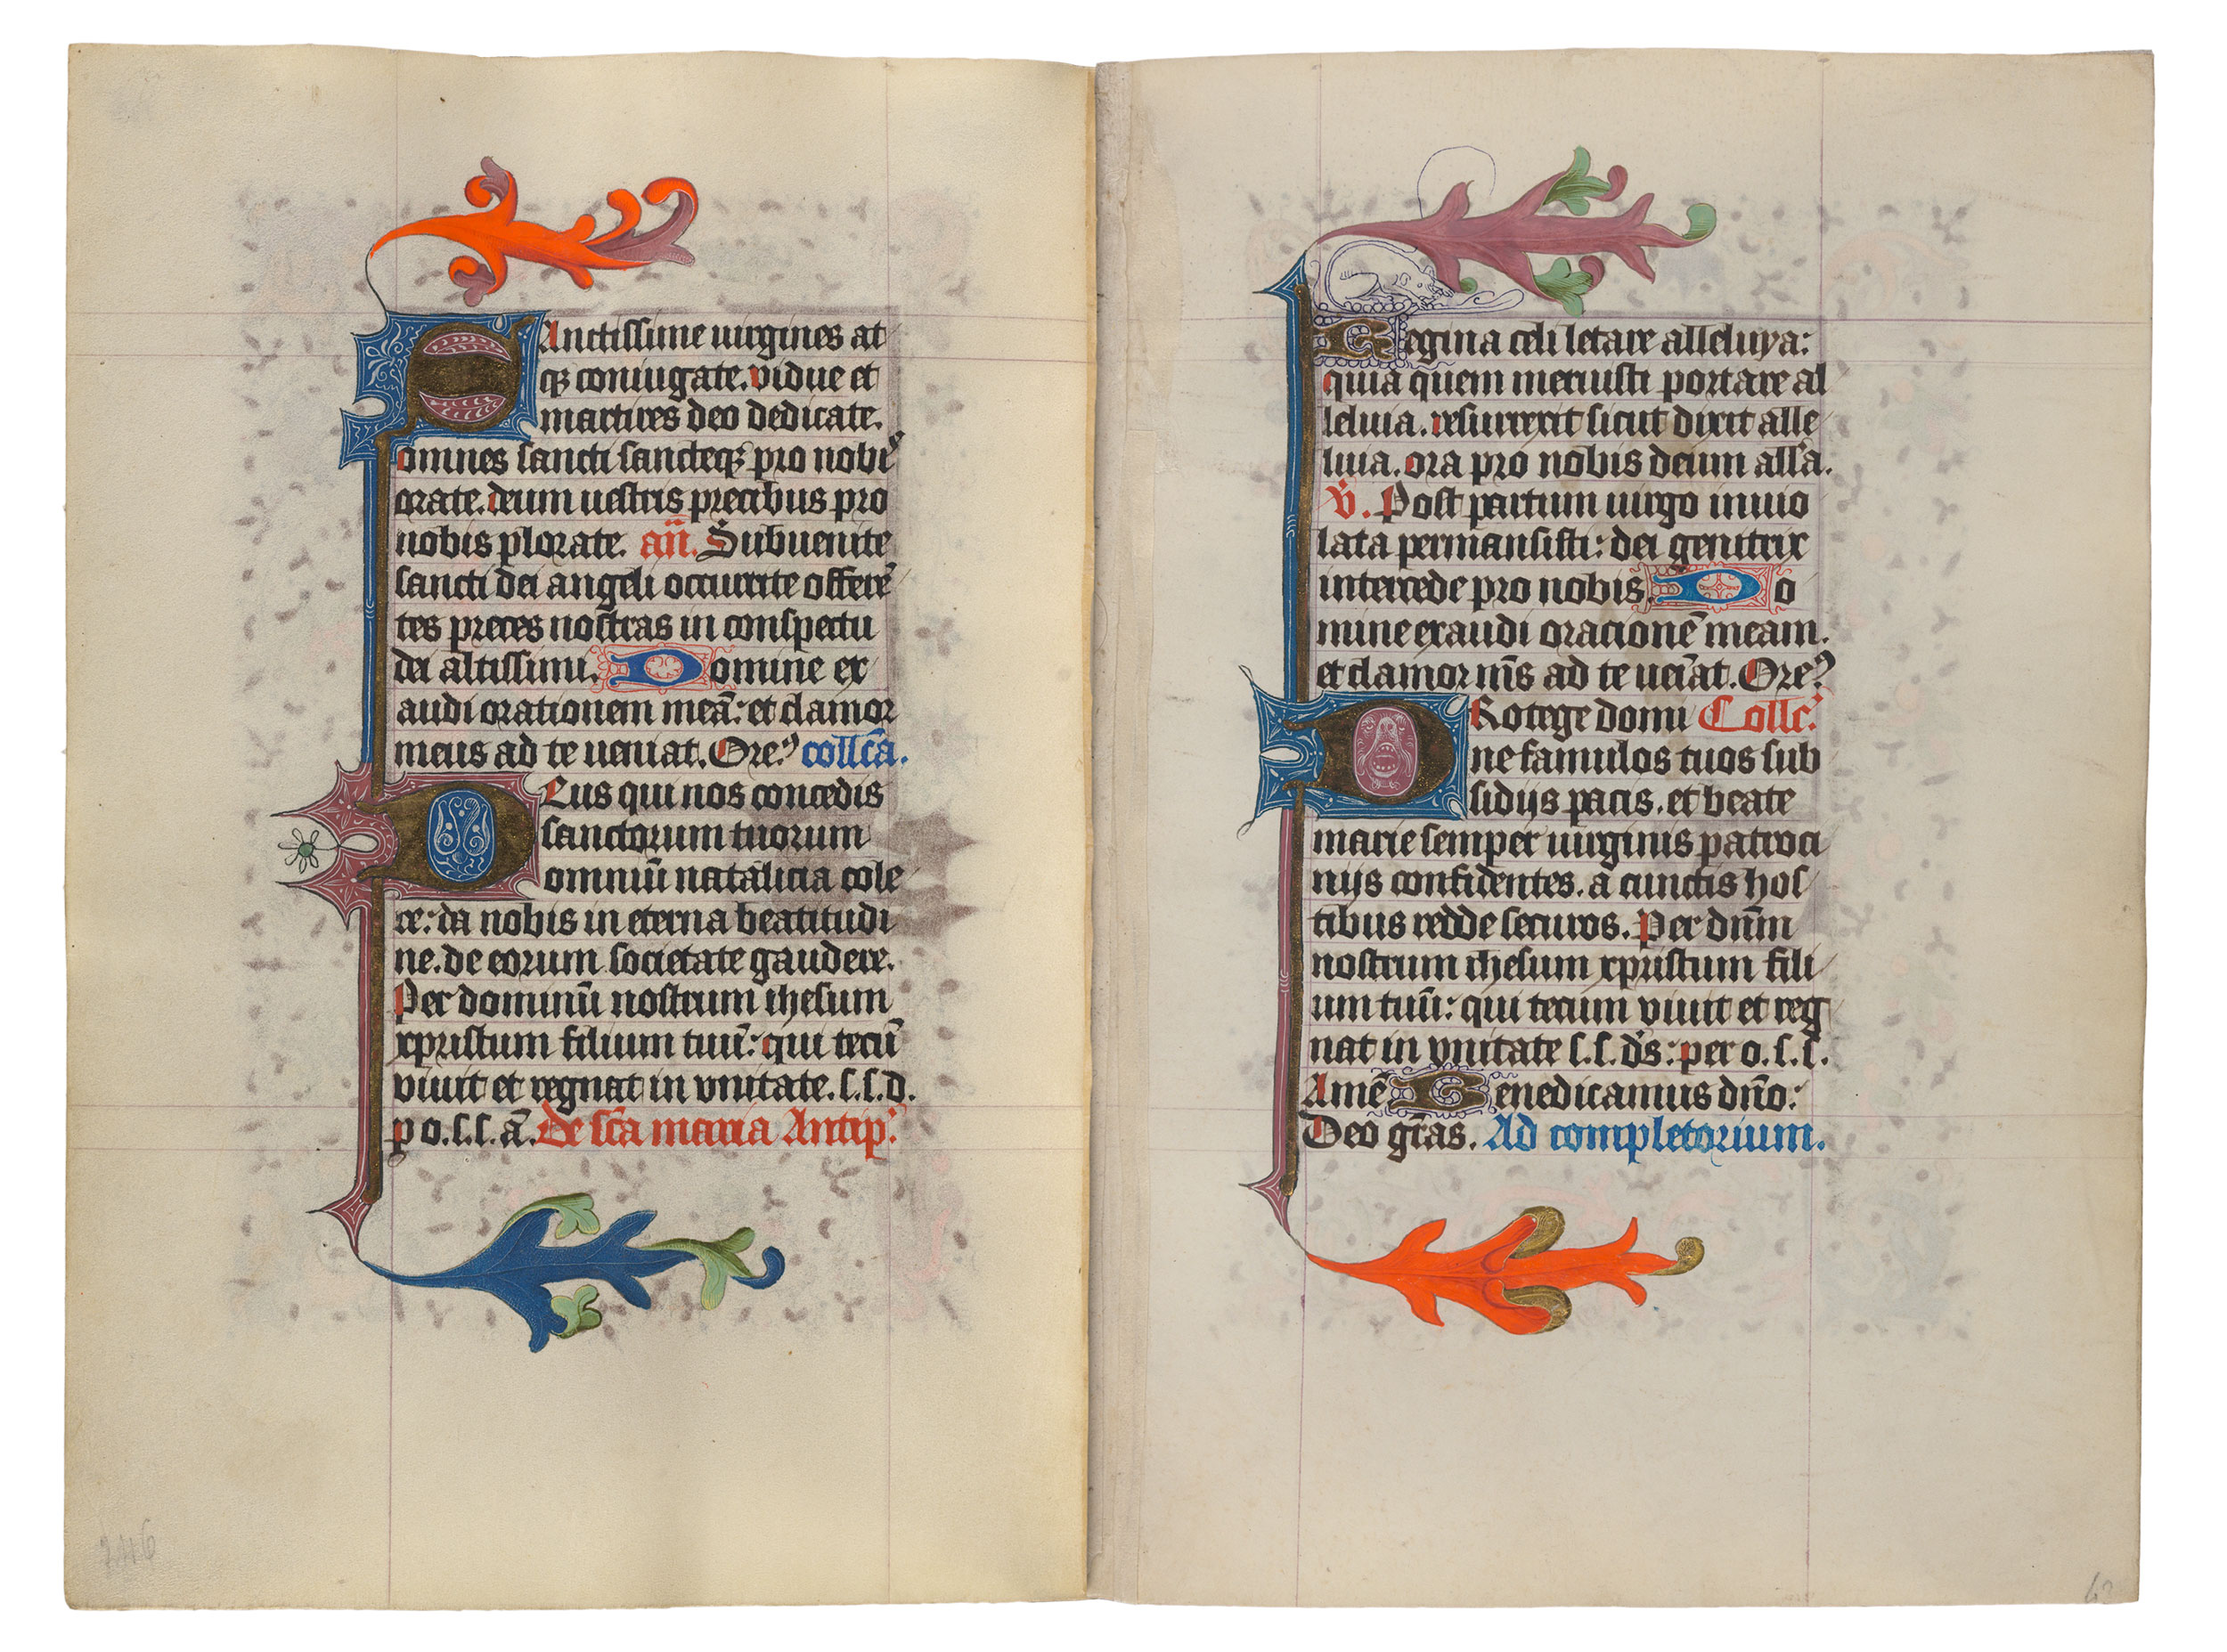 SAnctissime uirgines at
qꝫ coniugate. vidue et
martires deo dedicate.
omnes sancti sancteqꝫ pro nobiˢ
orate. deum uestris precibus pro
nobis plorate. añ. Subuenite
sancti dei angeli occurrite offerē
tes preces nostras in conspectu
dei altissimi. Domine ex
audi orationem meā: et clamor
meus ad te ueniat. Oreꝰ coll̄ca.
DEus qui nos concedis
sanctorum tuorum
omniū natalicia cole
re: da nobis in eterna beatitudi
ne. de eorum societate gaudere.
Per dominū nostrum ihesum
xpristum filium tuū: qui tecū
viuit et regnat in vnitate. s. s. d.
p o. s. s. ā. De sc̄a maria Antip.
Regina celi letare alleluya:
quia quem meruisti portare al
leluia. resurrexit sicut dixit alle
luia. ora pro nobis deum all'a.
v̇. Post partum uirgo inuio
lata permansisti: dei genitrix
intercede pro nobis. Do
mine exaudi oracionē meam.
et clamor m̄s ad te uei̅at. Oreꝰ
PRotege domi Collc̄.
ne famulos tuos sub
sidijs pacis. et beate
marie semper uirginis patroci
nijs confidentes. a cunctis hos
tibus redde securos. Per dn̄m
nostrum ihesum xpristum fili
um tuū: qui tecum viuit et reg
nat in vnitate s. s. d's: per o. s. s.
Amē Benedicamus dn̄o:
Deo gr̄as. Ad completorium.